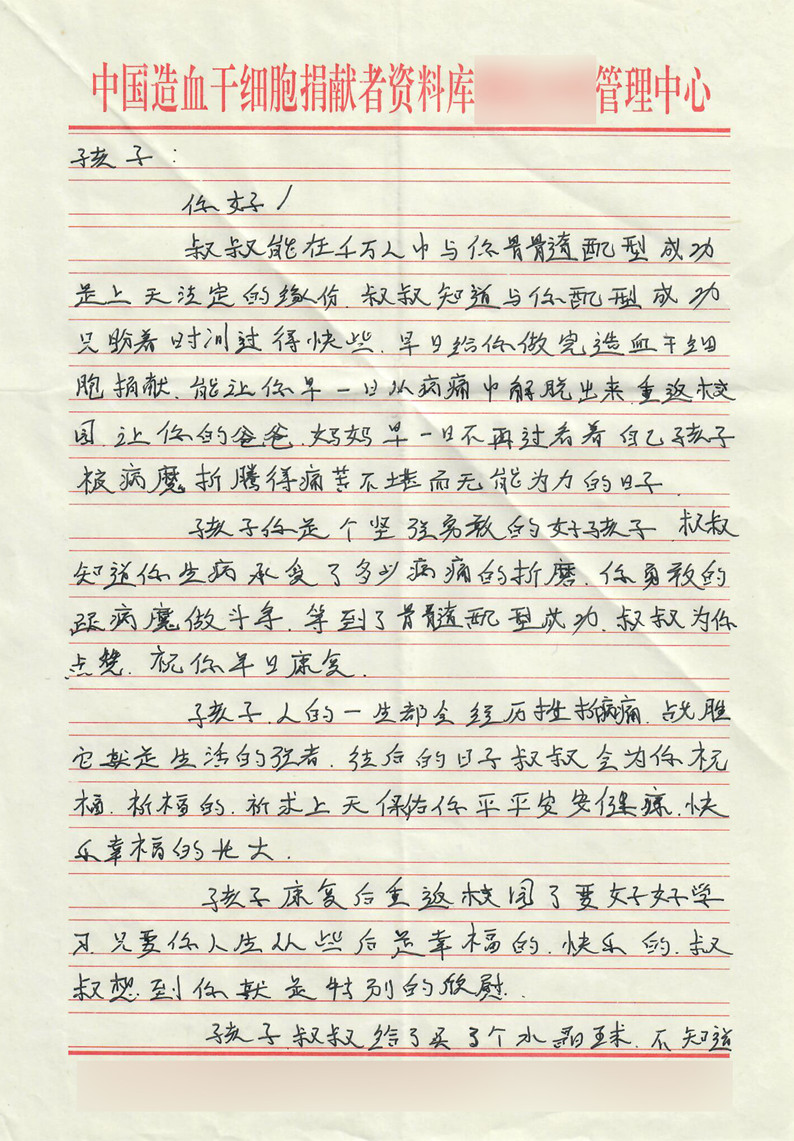 中国造血干细胞捐献者资料库 管理中心
孩子：
你好！
叔叔能在千万人中与你骨骨髓配型成功
是上天法定的缘份.叔叔知道与你配型成功
只盼着时间过得快些.早日给你做完造血干细
胞捐献.能让你早一日从病痛中解脱出来.重返校
园.让你的爸爸.妈妈早一日不再过看着自己孩子
被病魔折腾得痛苦不堪而无能为力的日子.
孩子你是个坚强勇敢的好孩子 叔叔
知道你生病承受了多少病痛的折磨.你勇敢的
跟病魔做斗争.等到了骨髓配型成功.叔叔为你
点赞.祝你早日康复.
孩子.人的一生都会经历挫折病痛.战胜
它就是生活的强者.往后的日子叔叔会为你祝
福.祈福的.祈求上天保佑你平平安安健康.快
乐幸福的长大.
孩子康复后重返校园了要好好学
习.只要你人生从些后是幸福的.快乐的.叔
叔想到你就是特别的欣慰.
孩子叔叔给了买了个水晶球.不知道